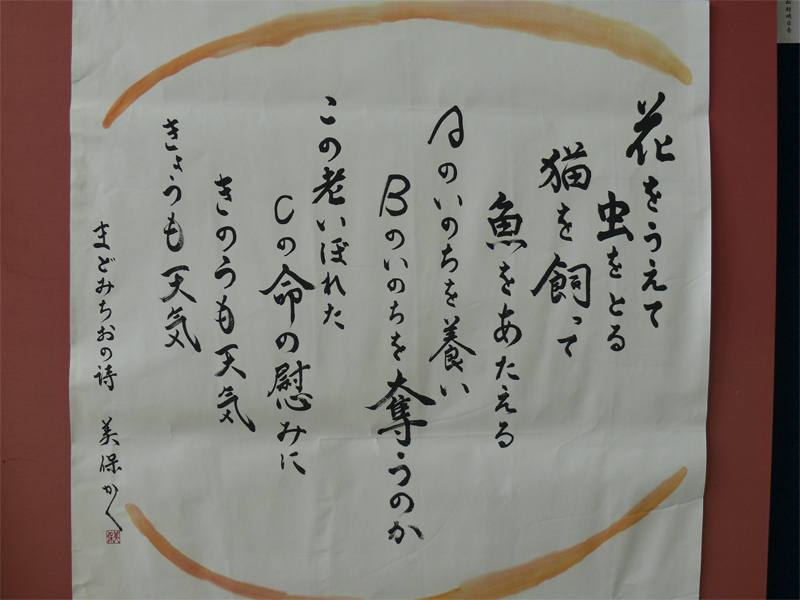 花をうえて
虫をとる
猫を飼って
魚をあたえる
Aのいのちを養い
Bのいのちを奪うのか
この老いぼれた
Cの命の慰みに
きのうも天気
きょうも天気
まどみちおの詩 美保かく